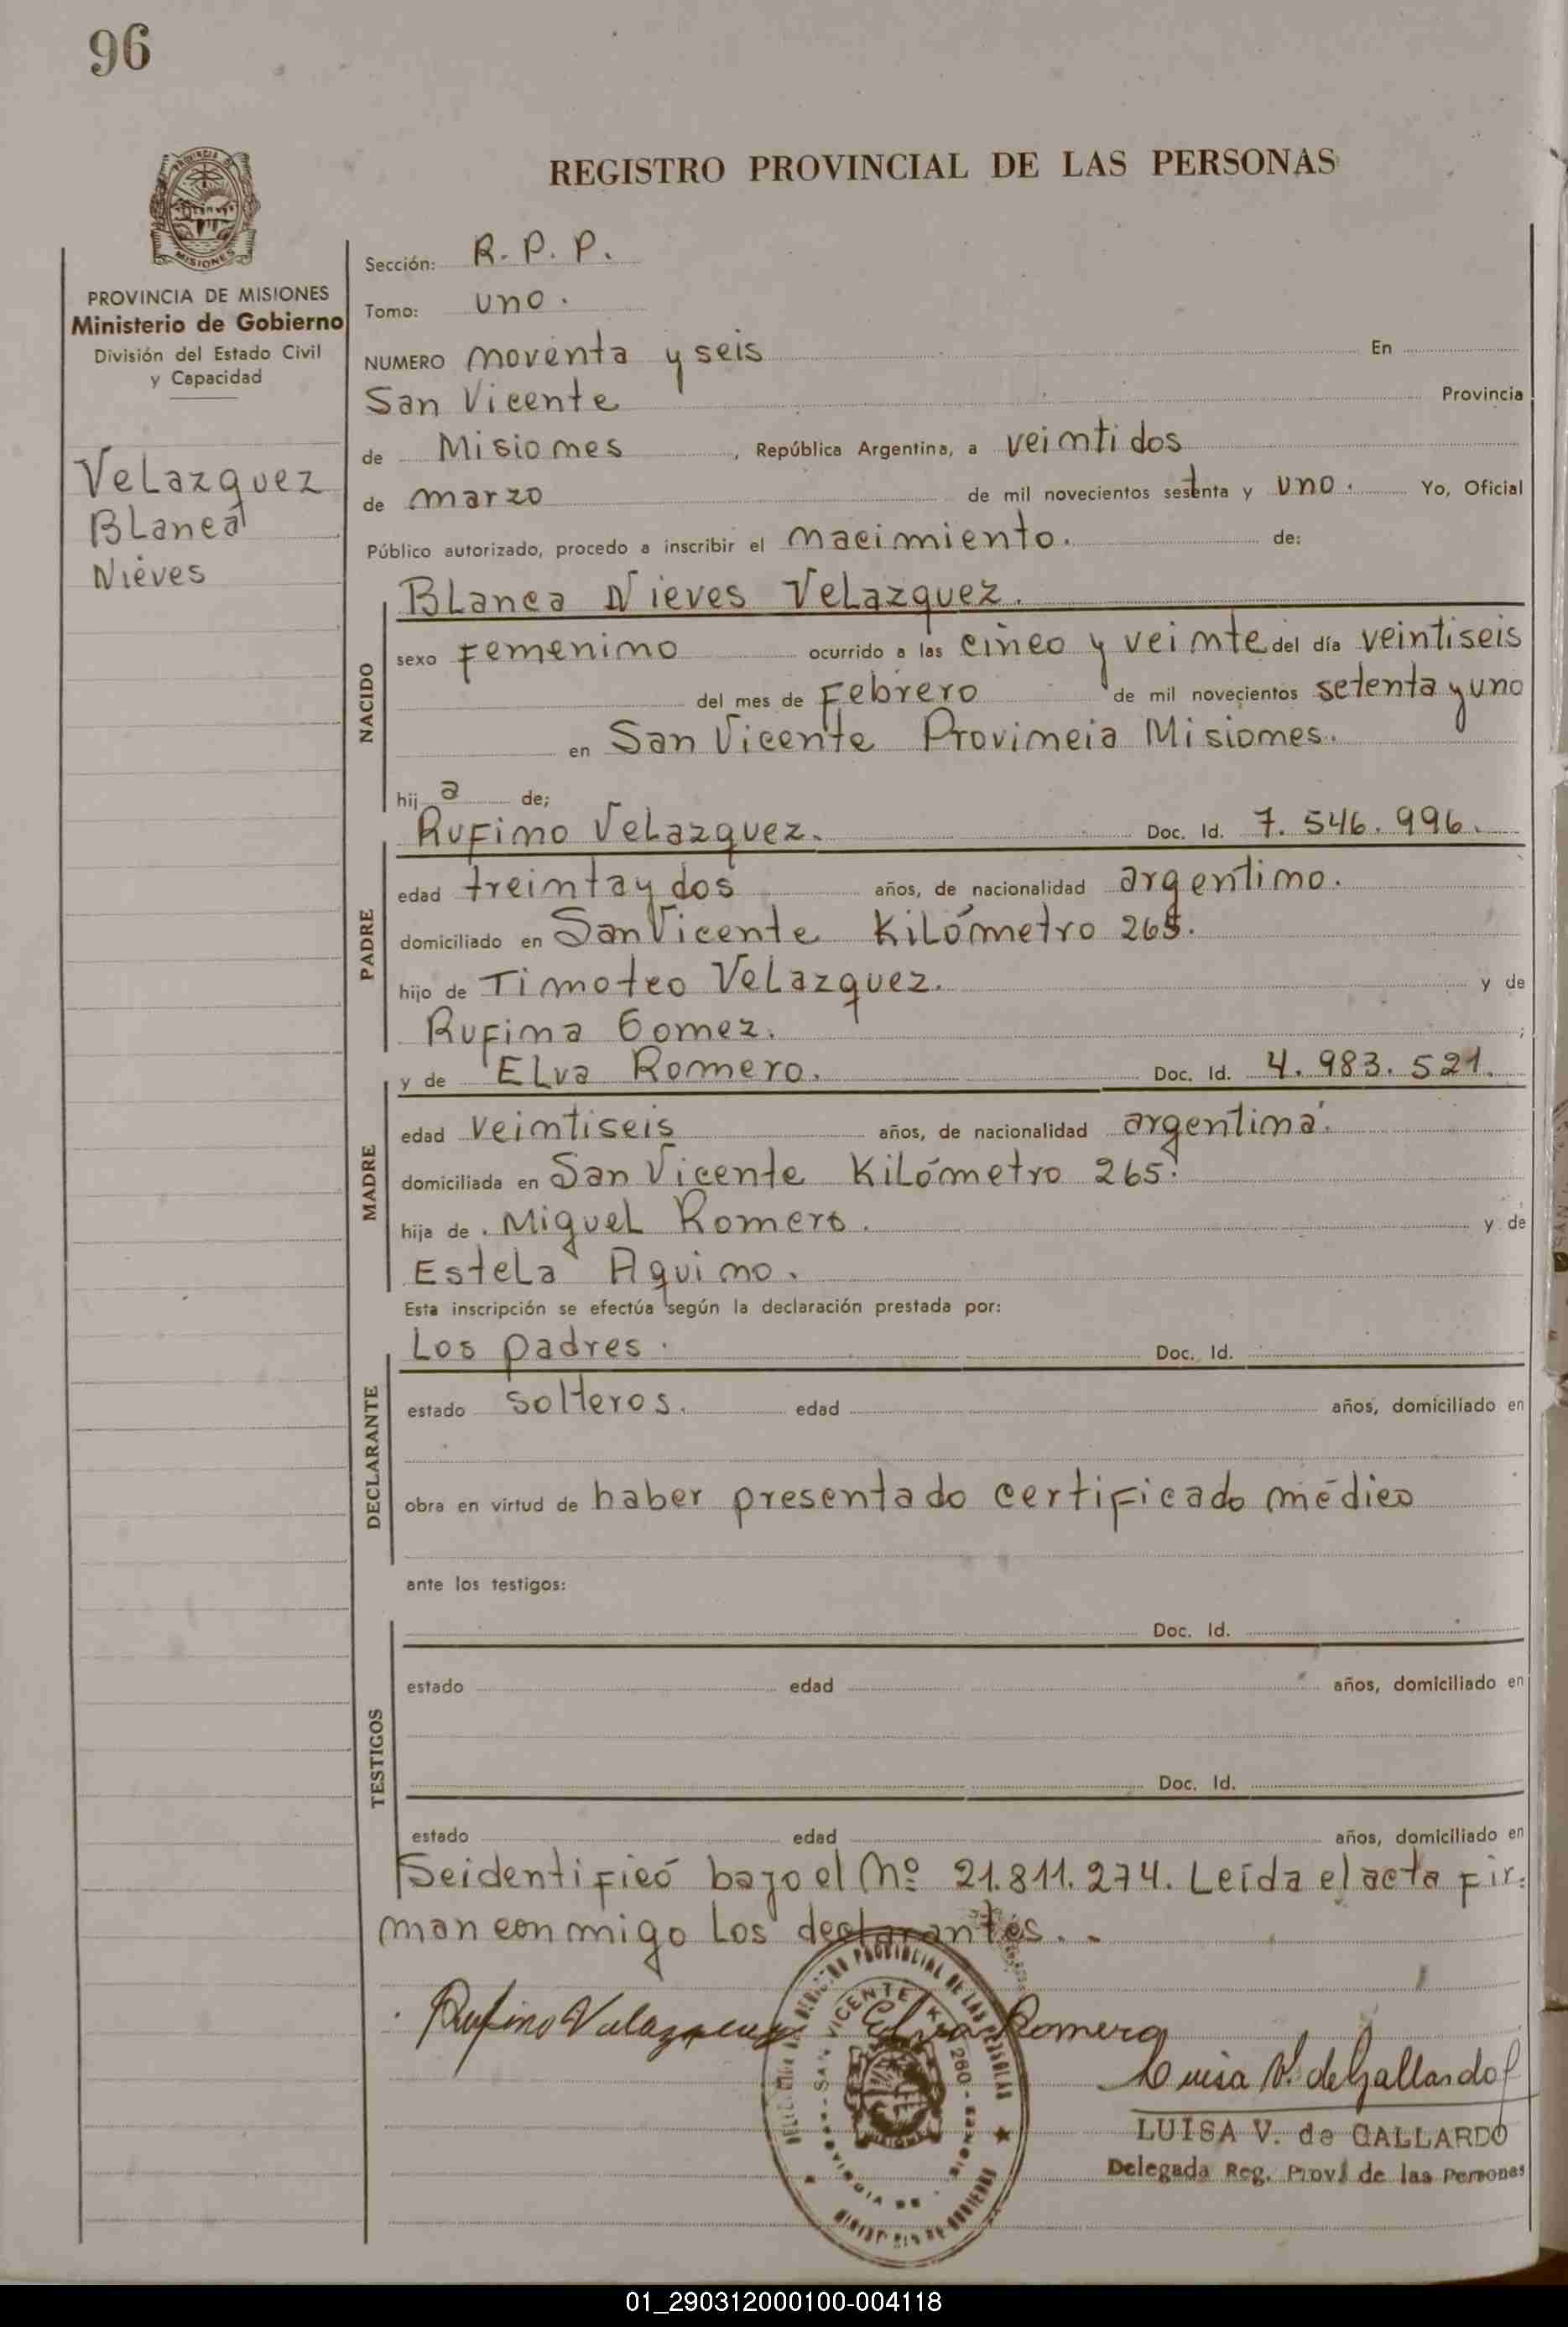 96
REGISTRO PROVINCIAL DE LAS PERSONAS
PROVINCIA DE
MISIONES
PROVINCIA DE MISIONES
Ministerio de Gobierno
División del Estado Civil
y Capacidad
Velazquez
Blanca
Nieves
Sección: R. P. P.
Tomo: uno.
NUMERO noventa y seis En
San Vicente Provincia
de Misiones, República Argentina, a veintidos
de marzo de mil novecientos setenta y uno. Yo, Oficial
Público autorizado, procedo a inscribir el nacimiento. de:
NACIDO
Blanca Nieves Velazquez.
sexo Femenino ocurrido a las cinco y veinte del día veintiseis
del mes de Febrero de mil novecientos setenta y uno
en San Vicente Provincia Misiones.
hija de;
PADRE
Rufino Velazquez. Doc. Id. 7.546.996.
edad treinta y dos años, de nacionalidad argentino.
domiciliado en San Vicente Kilómetro 265.
hijo de Timoteo Velazquez. y de
Rufina Gomez. ;
MADRE
y de Elva Romero. Doc. Id. 4.983.521.
edad veintiseis años, de nacionalidad argentina.
domiciliada en San Vicente Kilómetro 265.
hija de Miguel Romero. y de
Estela Aquino.
Esta inscripción se efectúa según la declaración prestada por:
DECLARANTE
Los padres. Doc. Id.
estado solteros. edad años, domiciliado en
obra en virtud de haber presentado certificado médico
ante los testigos:
TESTIGOS
Doc. Id.
estado edad años, domiciliado en
Doc. Id.
estado edad años, domiciliado en
Se identificó bajo el Nº 21.811.274. Leída el acta fir-
man conmigo los declarantes. -
Rufino Velazquez Elva Romero
Luisa V. de Gallardo
LUISA V. de GALLARDO
Delegada Reg. Prov. de las Personas
REGISTRO PROVINCIAL DE LAS PERSONAS
SAN VICENTE K. 260
01_290312000100-004118